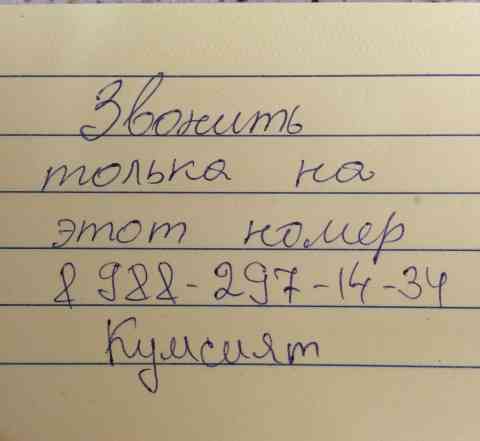 Звонить
толька на
этот номер
8 988-297-14-34
Кумсият